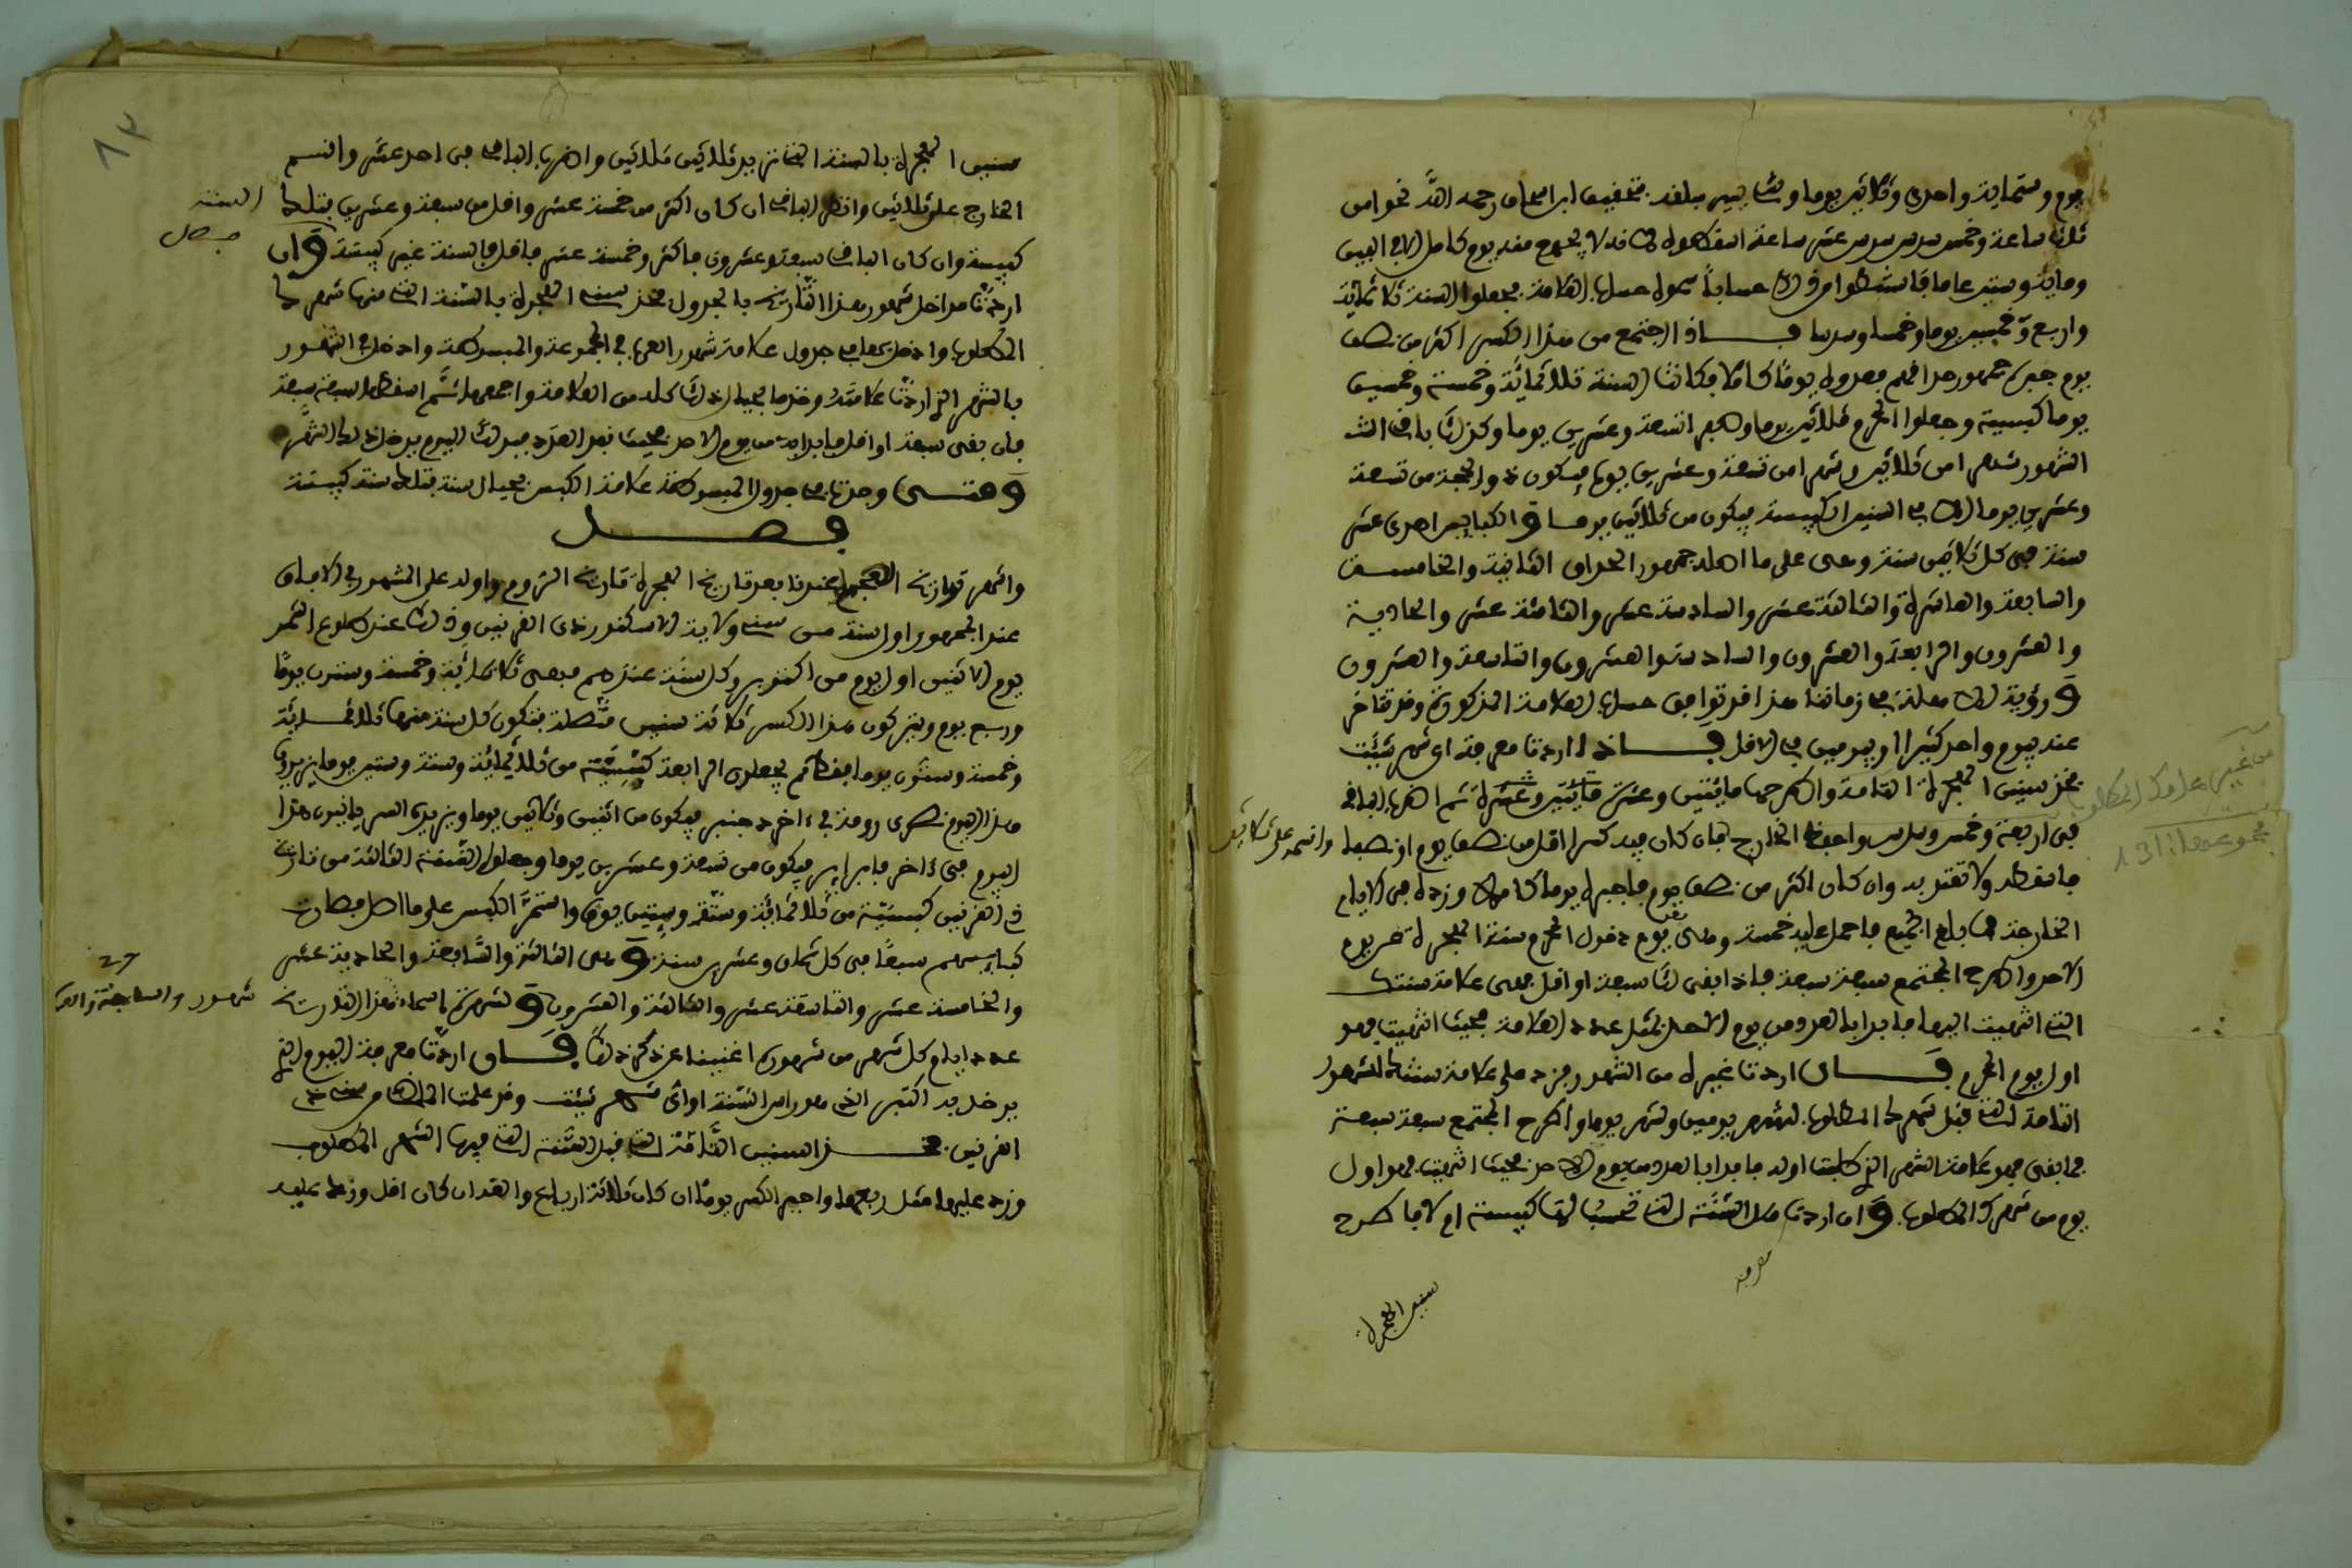 يوم وستماية واحدى وثلاثين يوما وشا يسير مبلغه بتحقيق ابن اسحاق رحمه الله نحوا من
ثلث ساعة وخمس سدس سدس عشر ساعة اسقطوه لانه لا يجتمع منه يوم كامل الا في الفين
وماية وستين عاما
حساب العلامة بجعلوا السنة ثلاثماية
واربع وخمسين يوما وخمسا وسدسا فاذا اجتمع من هذا الكسر اكثر من نصف
يوم جبره جمهورهم بعدوه يوما كاملا فكانت السنة ثلاثمائة وخمسة وخمسين
يوما كبيسة وجعلوا المحرم ثلاثين يوما وصفر تسعة وعشرين يوما وكذلك باقي
الشهور شهرا من ثلاثين وشهرا من تسعة وعشرين يوما فيكون ذو الحجة من تسعة
وعشرين يوما الا في السنين الكبيسة فيكون من ثلاثين يوما والكبايس احدى عشر
سنة في كل ثلاثين سنة وهي على ما اصله جمهور الحساب الثانية والخامسة
والسابعة والعاشرة والثالثة عشر والسادسة عشر والثامنة عشر والحادية
والعشرون والرابعة والعشرون والسادسة والعشرون والتاسعة والعشرون
ورؤية الاهلة في زماننا هذا قد توافق حساب العلامة المذكورة وقد تتاخر
عنه بيوم واحد كثيرا او بيومين في الاقل فاذا اردت معرفة اي شهر شئت
فخذ سنين الهجرة التامة واطرحها مايتين وعشرة مايتين وعشرة ثم اضرب الباقي
في اربعة وخمس وسدس واحفظ الخارج فان كان فيه كسرا اقل من نصف يوم او نصفا
واقسمه على ثلاثين
فاسقطه ولا تعتد به وان كان اكثر من نصف يوم فاجبره يوما كاملا وزده في الايام
الخارجة فما بلغ الجميع فاحمل عليه خمسة وهي يوم دخول المحرم سنة الهجرة من يوم
الاحد واطرح المجتمع سبعة سبعة فاذا بقي لك سبعة او اقل فهي علامة سنتك
التي انتهيت اليها فابدا بالعدد من يوم الاحد بمثل عدد العلامة فحيث انتهيت فهو
اول يوم المحرم فان اردت غيره من الشهور فزد على علامة سنتك للشهور
التامة التي قبل شهرك المطلوب لشهر يومين ولشهر يوما واطرح المجتمع سبعة سبعة
فما بقي فهو علامة الشهر الذي طلبت اوله فابدا بالعدد من يوم الاحد فحيث انتهيت فهو اول
يوم من شهرك المطلوب وان اردت هل السنة التي تحسب لها كبيسة ام لا فاطرح
معرفة
سنين الهجرة
من غير علامة المطلوب
مجموعهما: 131
سنين الهجرة بالسنة التي انت فيه ثلاثين ثلاثين واضرب الباقي في احد عشر واقسم
الخارج على ثلاثين وانظر الباقي ان كان اكثر من خمسة عشر واقل من سبعة وعشرين فتلك
السنة
كبيسة وان كان الباقي سبعة وعشرون فاكثر وخمسة عشر فاقل فالسنة غير كبيسة وان
اردت مداخل شهور هذا التاريخ بالجدول فخذ سنين الهجرة بالسنة التي منها شهرك
المطلوب وادخل بها في جدول علامة شهور العرب في المجموعة والمبسوطة وادخل في الشهور
بالشهر الذي اردت علامته وخذ ما بحيال ذلك كله من العلامة واجمعها ثم اسقطها سبعة سبعة
فان بقى سبعة او اقل فابدا به من يوم الاحد فحيث نفد العدد فبذلك اليوم يدخل ذلك الشهر
ومتى وجدت في جدول المبسوطة علامة الكبس بحيال سنة فتلك سنة كبيسة
فصل
واشهر تواريخ العجم عندنا بعد تاريخ الهجرة تاريخ الروم واوله على المشهور في الافاق
عند الجمهور اول سنة من سنين ولاية الاسكندر ذي القرنين وذلك عند طلوع الفجر
يوم الاثنين اول يوم من اكتوبر وكل سنة عندهم فهي ثلاثماية وخمسة وستون يوما
وربع يوم ويتركون هذا الكسر ثلاثة سنين متصلة فتكون كل سنة منها ثلاثماية
وخمسة وستون يوما فقط ثم يجعلون الرابعة كبيسة من ثلاثمائة وستة وستين يوما يزيدون
هذا اليوم نصارى رومة في ءاخر دجنبر فيكون من اثنين وثلاثين يوما ويزيد السريانيون هذا
اليوم في ءاخر فبراير فيكون من تسعة وعشرين يوما وجعلوا السنة الثالثة من تاريخ
ذي القرنين كبيسة من ثلاثمائة وستة وستين يوما واستمر الكبس على هذا الاصل فصارت
كبايسهم سبعا في كل ثمان وعشرين سنة وهي الثالثة والسابعة والحادية عشر
والخامسة عشر والتاسعة عشر والثالثة والعشرون
والسابعة والعـ
ولشهرة اسماء شهور هذا التاريخ
عدد ايام كل شهر من شهوره اغنينا عن ذكر ذلك فان اردت معرفة اليوم الذي
يدخل به اكتبر الذي هو راس السنة او اي شهر شئت وقد علمت الماضي من سنين ذي
القرنين فخذ السنين التامة التي قبل السنة التي فيها الشهر المطلوب
وزد عليها مثل ربعها واجبر الكسر يوما ان كان ثلاثة ارباع والغه ان كان اقل وزد عليه